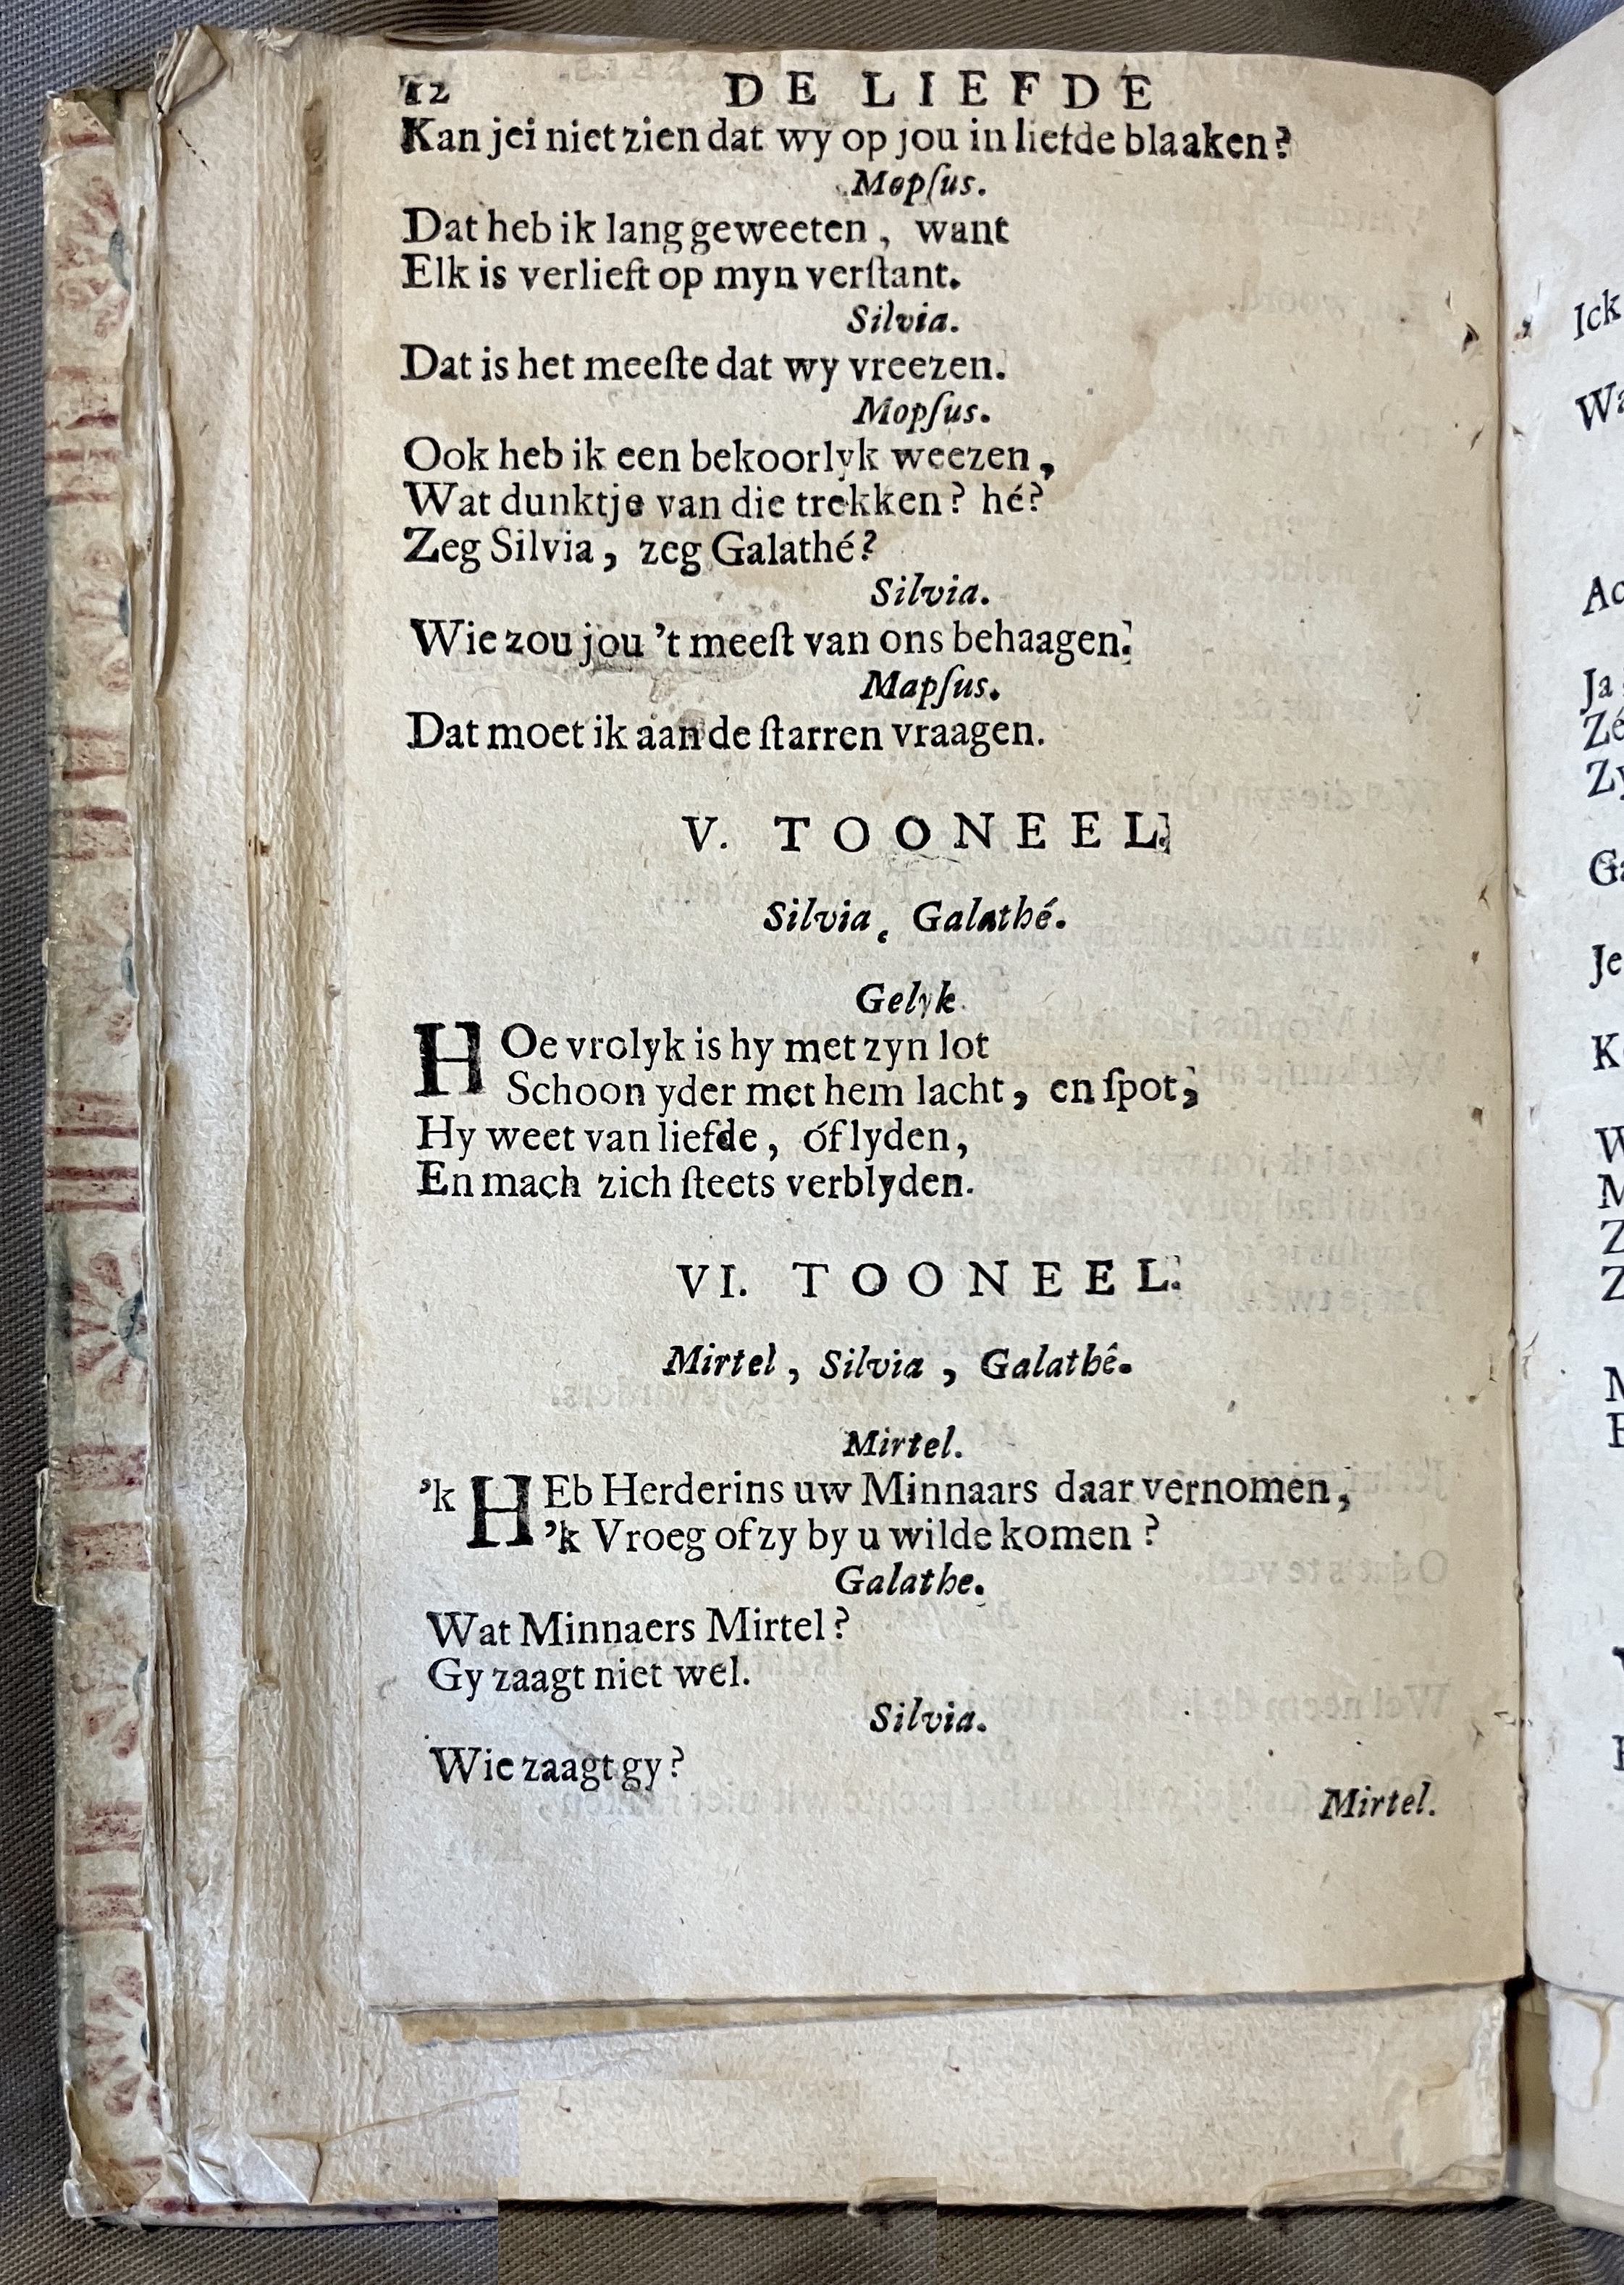 12 DE LIEFDE
Kan jei niet zien dat wy op jou in liefde blaaken?
Mopſus.
Dat heb ik lang geweeten, want
Elk is verlieft op myn verſtant.
Silvia.
Dat is het meeſte dat wy vreezen.
Mopſus.
Ook heb ik een bekoorlyk weezen,
Wat dunktje van die trekken? hé?
Zeg Silvia, zeg Galathé?
Silvia.
Wie zou jou 't meeſt van ons behaagen.
Mapſus.
Dat moet ik aan de ſtarren vraagen.
V. TOONEEL.
Silvia, Galathé.
Gelyk.
HOe vrolyk is hy met zyn lot
Schoon yder met hem lacht, en ſpot;
Hy weet van liefde, óf lyden,
En mach zich ſteets verblyden.
VI. TOONEEL.
Mirtel, Silvia, Galathê.
Mirtel.
'k HEb Herderins uw Minnaars daar vernomen,
'k Vroeg of zy by u wilde komen?
Galathe.
Wat Minnaers Mirtel?
Gy zaagt niet wel.
Silvia.
Wie zaagt gy?
Mirtel.
Ick
Ja
Je